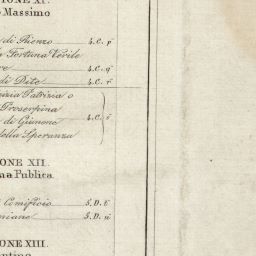 IONE XI.
o Massimo
di Rienzo 4.C. p
Fortuna Virile
4.C. q
di Dite 4.C. r
Patrizia o
Proserpina
di Giunone 4.C. s
della Speranza
ONE XII.
na Publica.
Comificio 5.D. t
niane 5.D. u
ONE XIII.
entino